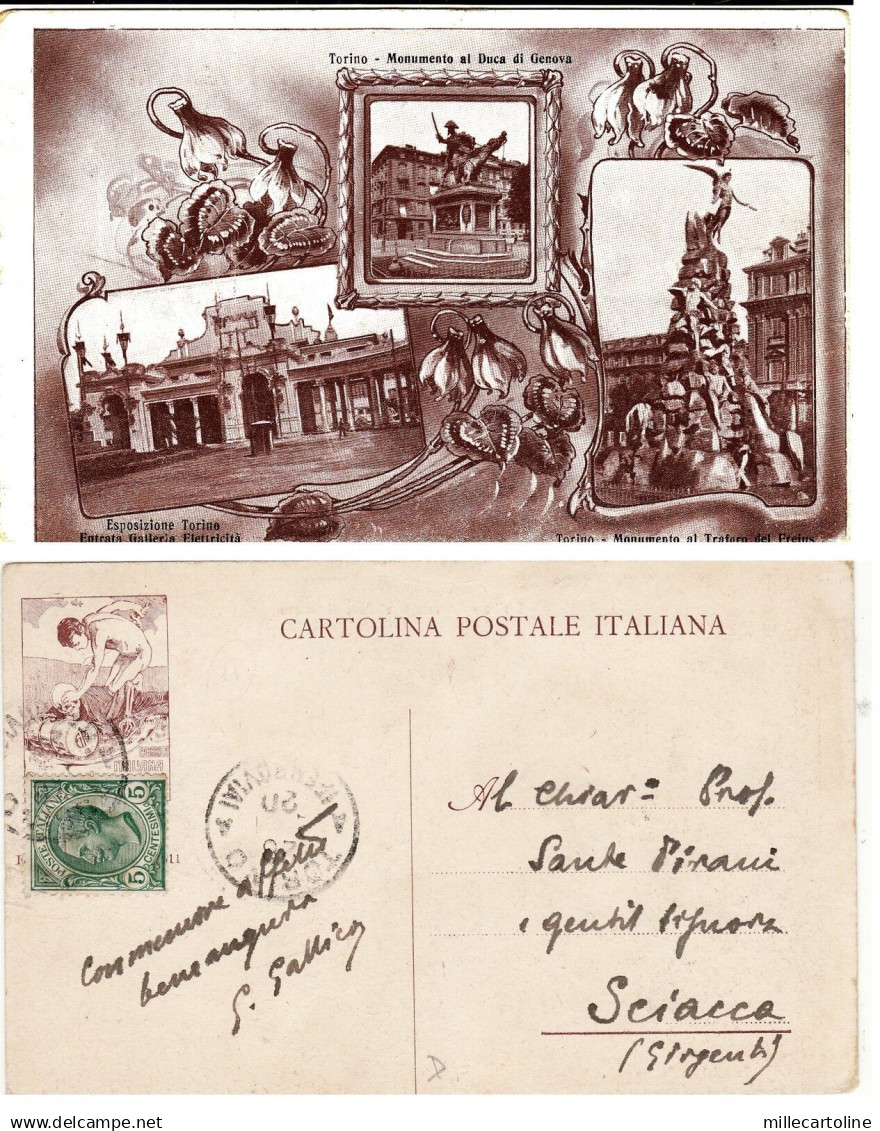 Torino - Monumento al Duca di Genova
Esposizione Torino
Entrata Galleria Elettricità
Torino - Monumento al Traforo del Frejus
CARTOLINA POSTALE ITALIANA
ITALIANA
POSTE ITALIANE
5 CENTESIMI 5
11
FERROVIA
TOR
20
Al Chiar. Prof.
Sante Pirani
e gentil Signora
Sciacca
(Girgenti)
Con memore affetto
bene augura
G. Gallico
D.
millecartoline